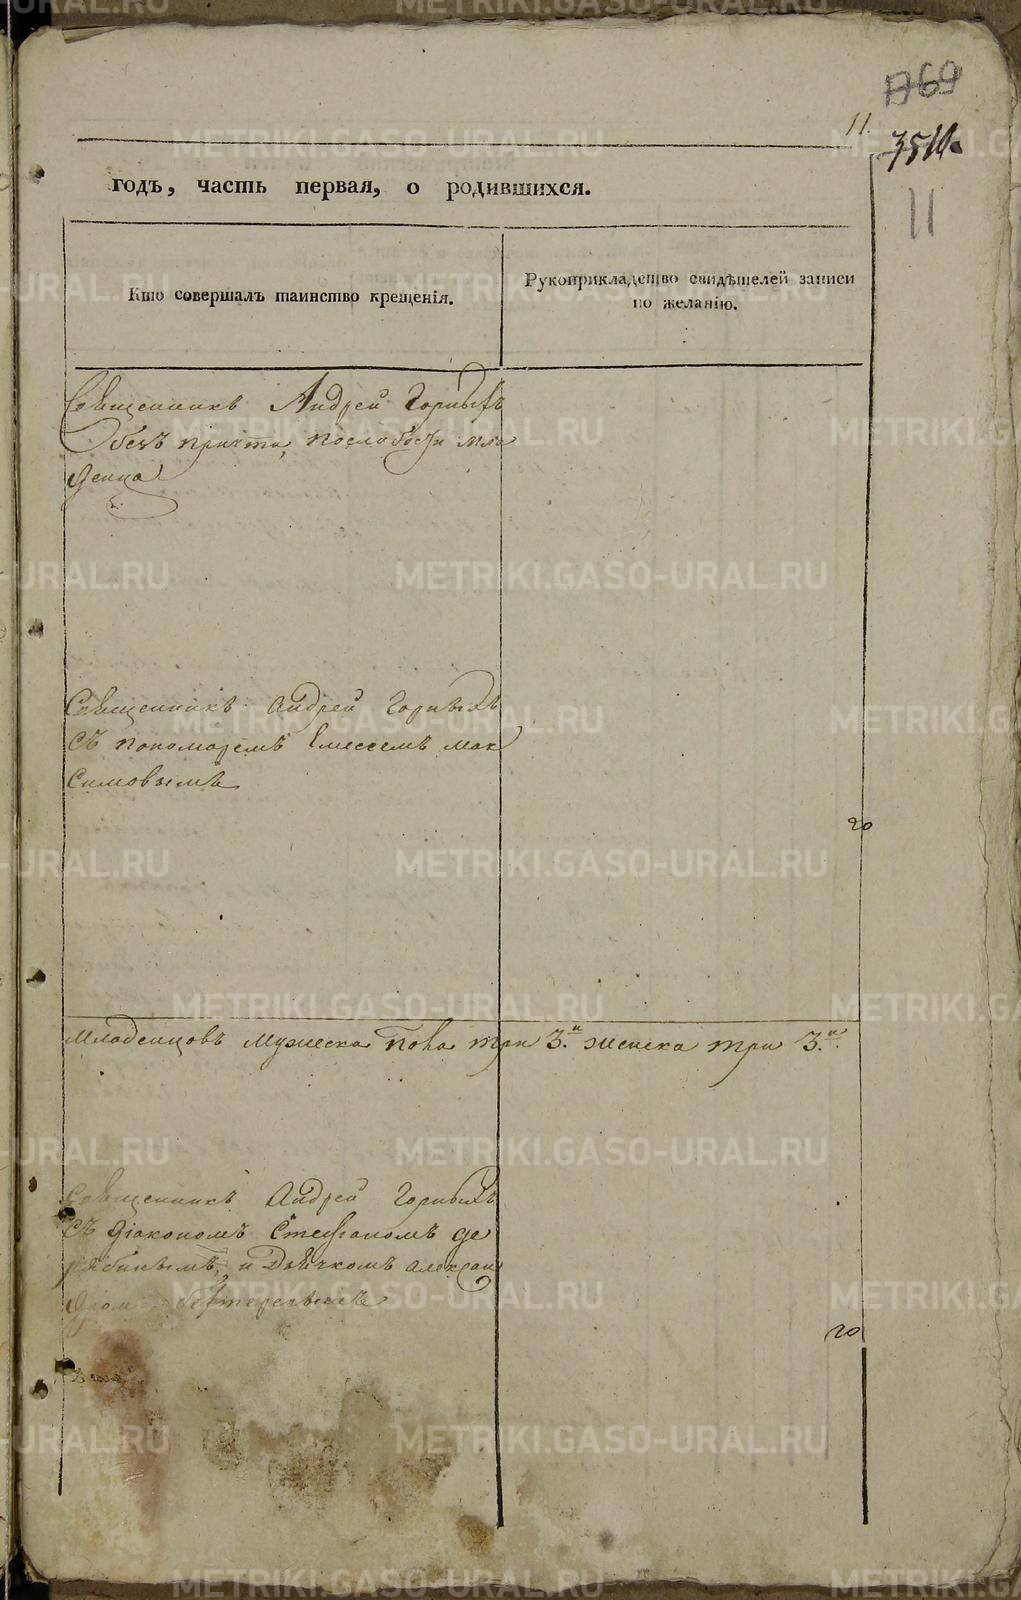 769
11.
11
годъ, часть первая, о родившихся.
Кто совершалъ таинство крещенія.
Рукоприкладство свидѣтелей записи
по желанію.
Священникъ Андрей Горныхъ
безъ причта, послабости мла
денца
Священникъ Андрей Горныхъ
съ пономаремъ Елисеемъ Мак
симовымъ
го
младенцовъ мужеска пола три 3.и женска три 3.и.
Священникъ Андрей Горныхъ
съ діакономъ Стефаномъ де
рябинымъ, и Дьячкомъ Алексан
дромъ
го
METRIKI.GASO-URAL.RU